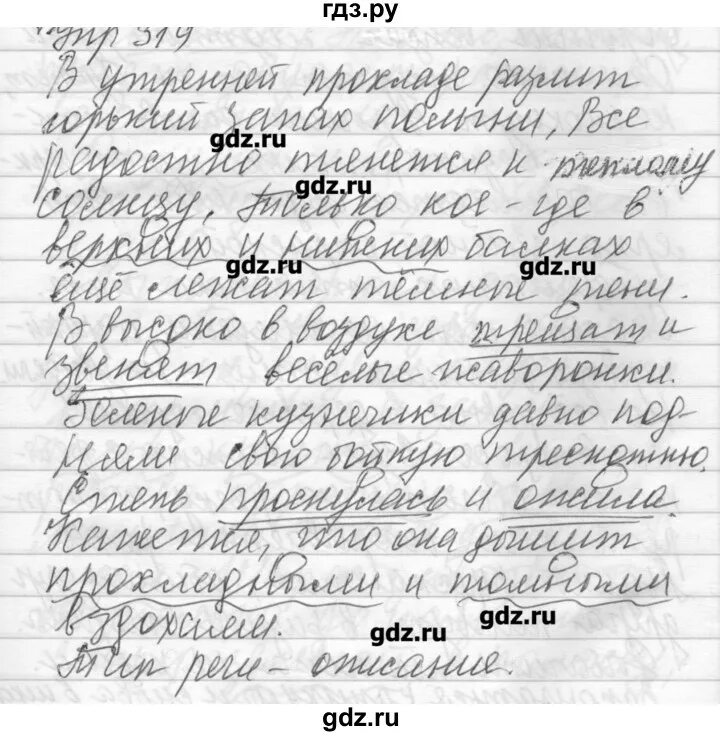 гдз.ру
Упр 319
В утренней прохладе разлит
горький запах полыни. Все
gdz.ru
радостно тянется к теплому
gdz.ru
солнцу. Только кое-где в
верхних и нижних балках
gdz.ru gdz.ru
ещё лежат тёмные тени.
В высоко в воздухе трещат и
звенят весёлые жаворонки.
Зеленые кузнечики давно под-
няли свою бойкую трескотню.
Степь проснулась и ожила.
Кажется, что она дышит
прохладными и томными
gdz.ru
вздохами.
gdz.ru
Тип речи - описание.
gdz.ru